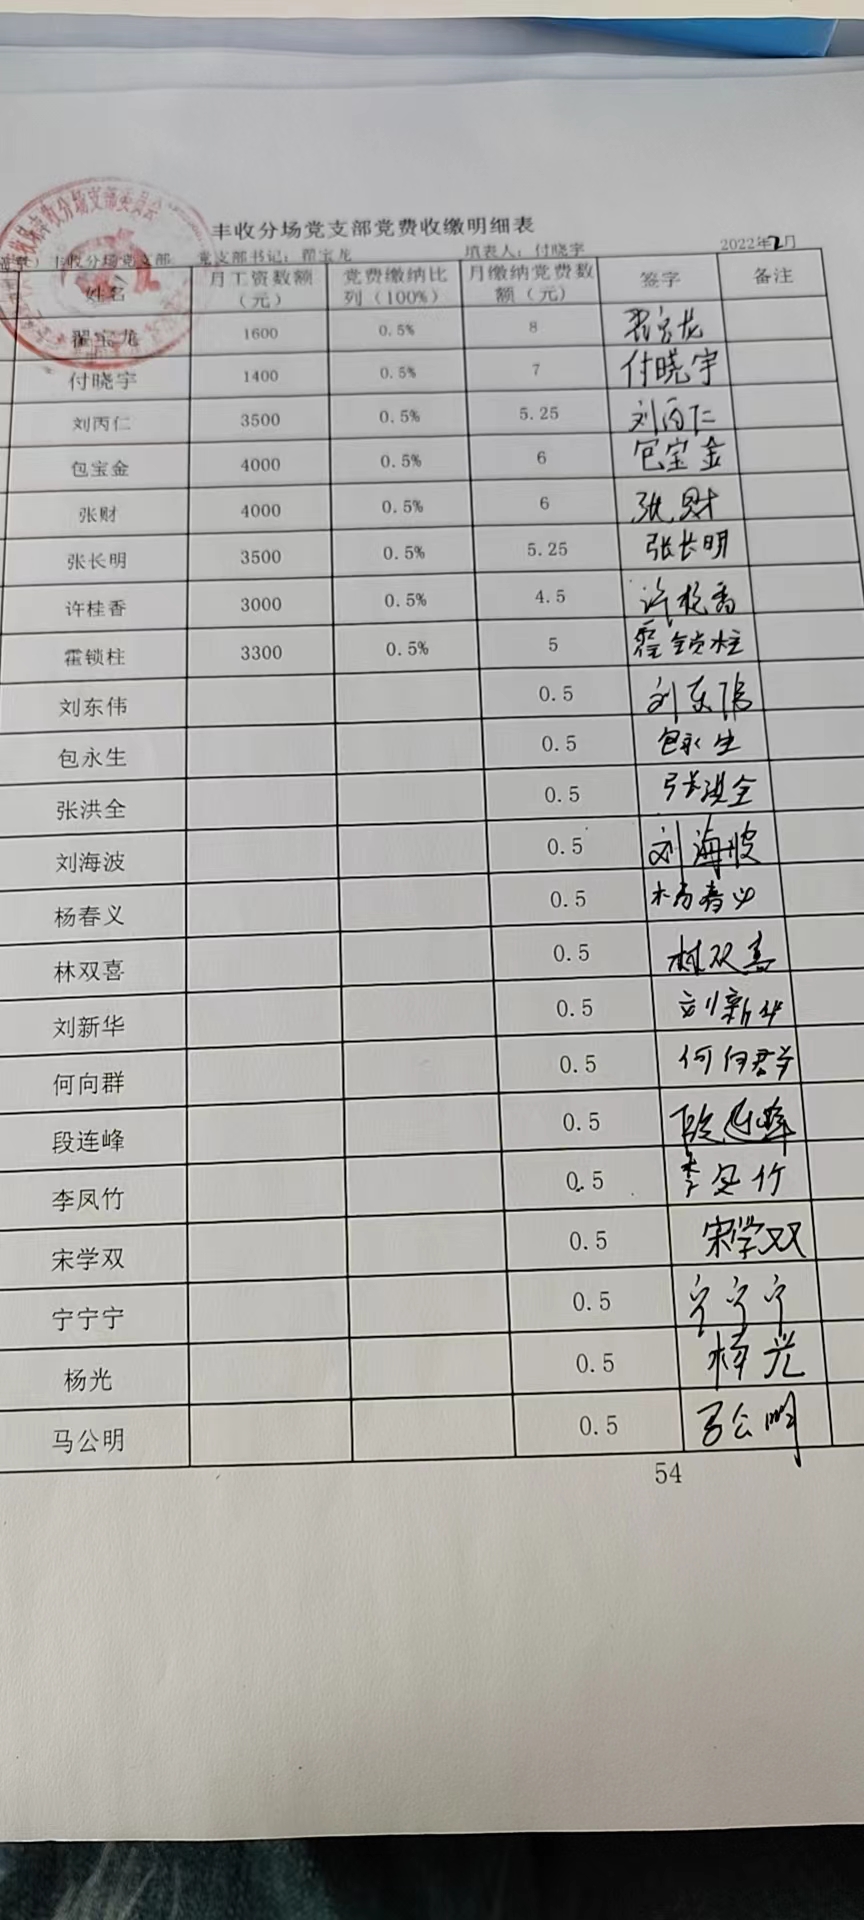 丰收分场党支部党费收缴明细表
丰收分场党支部 党支部书记：翟宝龙 填表人：付晓宇 2022年2月
姓名 月工资数额（元） 党费缴纳比列（100%） 月缴纳党费数额（元） 签字 备注
翟宝龙 1600 0.5% 8 翟宝龙
付晓宇 1400 0.5% 7 付晓宇
刘丙仁 3500 0.5% 5.25 刘丙仁
包宝金 4000 0.5% 6 包宝金
张财 4000 0.5% 6 张财
张长明 3500 0.5% 5.25 张长明
许桂香 3000 0.5% 4.5 许桂香
霍锁柱 3300 0.5% 5 霍锁柱
刘东伟 0.5 刘东伟
包永生 0.5 包永生
张洪全 0.5 张洪全
刘海波 0.5 刘海波
杨春义 0.5 杨春义
林双喜 0.5 林双喜
刘新华 0.5 刘新华
何向群 0.5 何向群
段连峰 0.5 段连峰
李凤竹 0.5 李凤竹
宋学双 0.5 宋学双
宁宁宁 0.5 宁宁宁
杨光 0.5 杨光
马公明 0.5 马公明
54